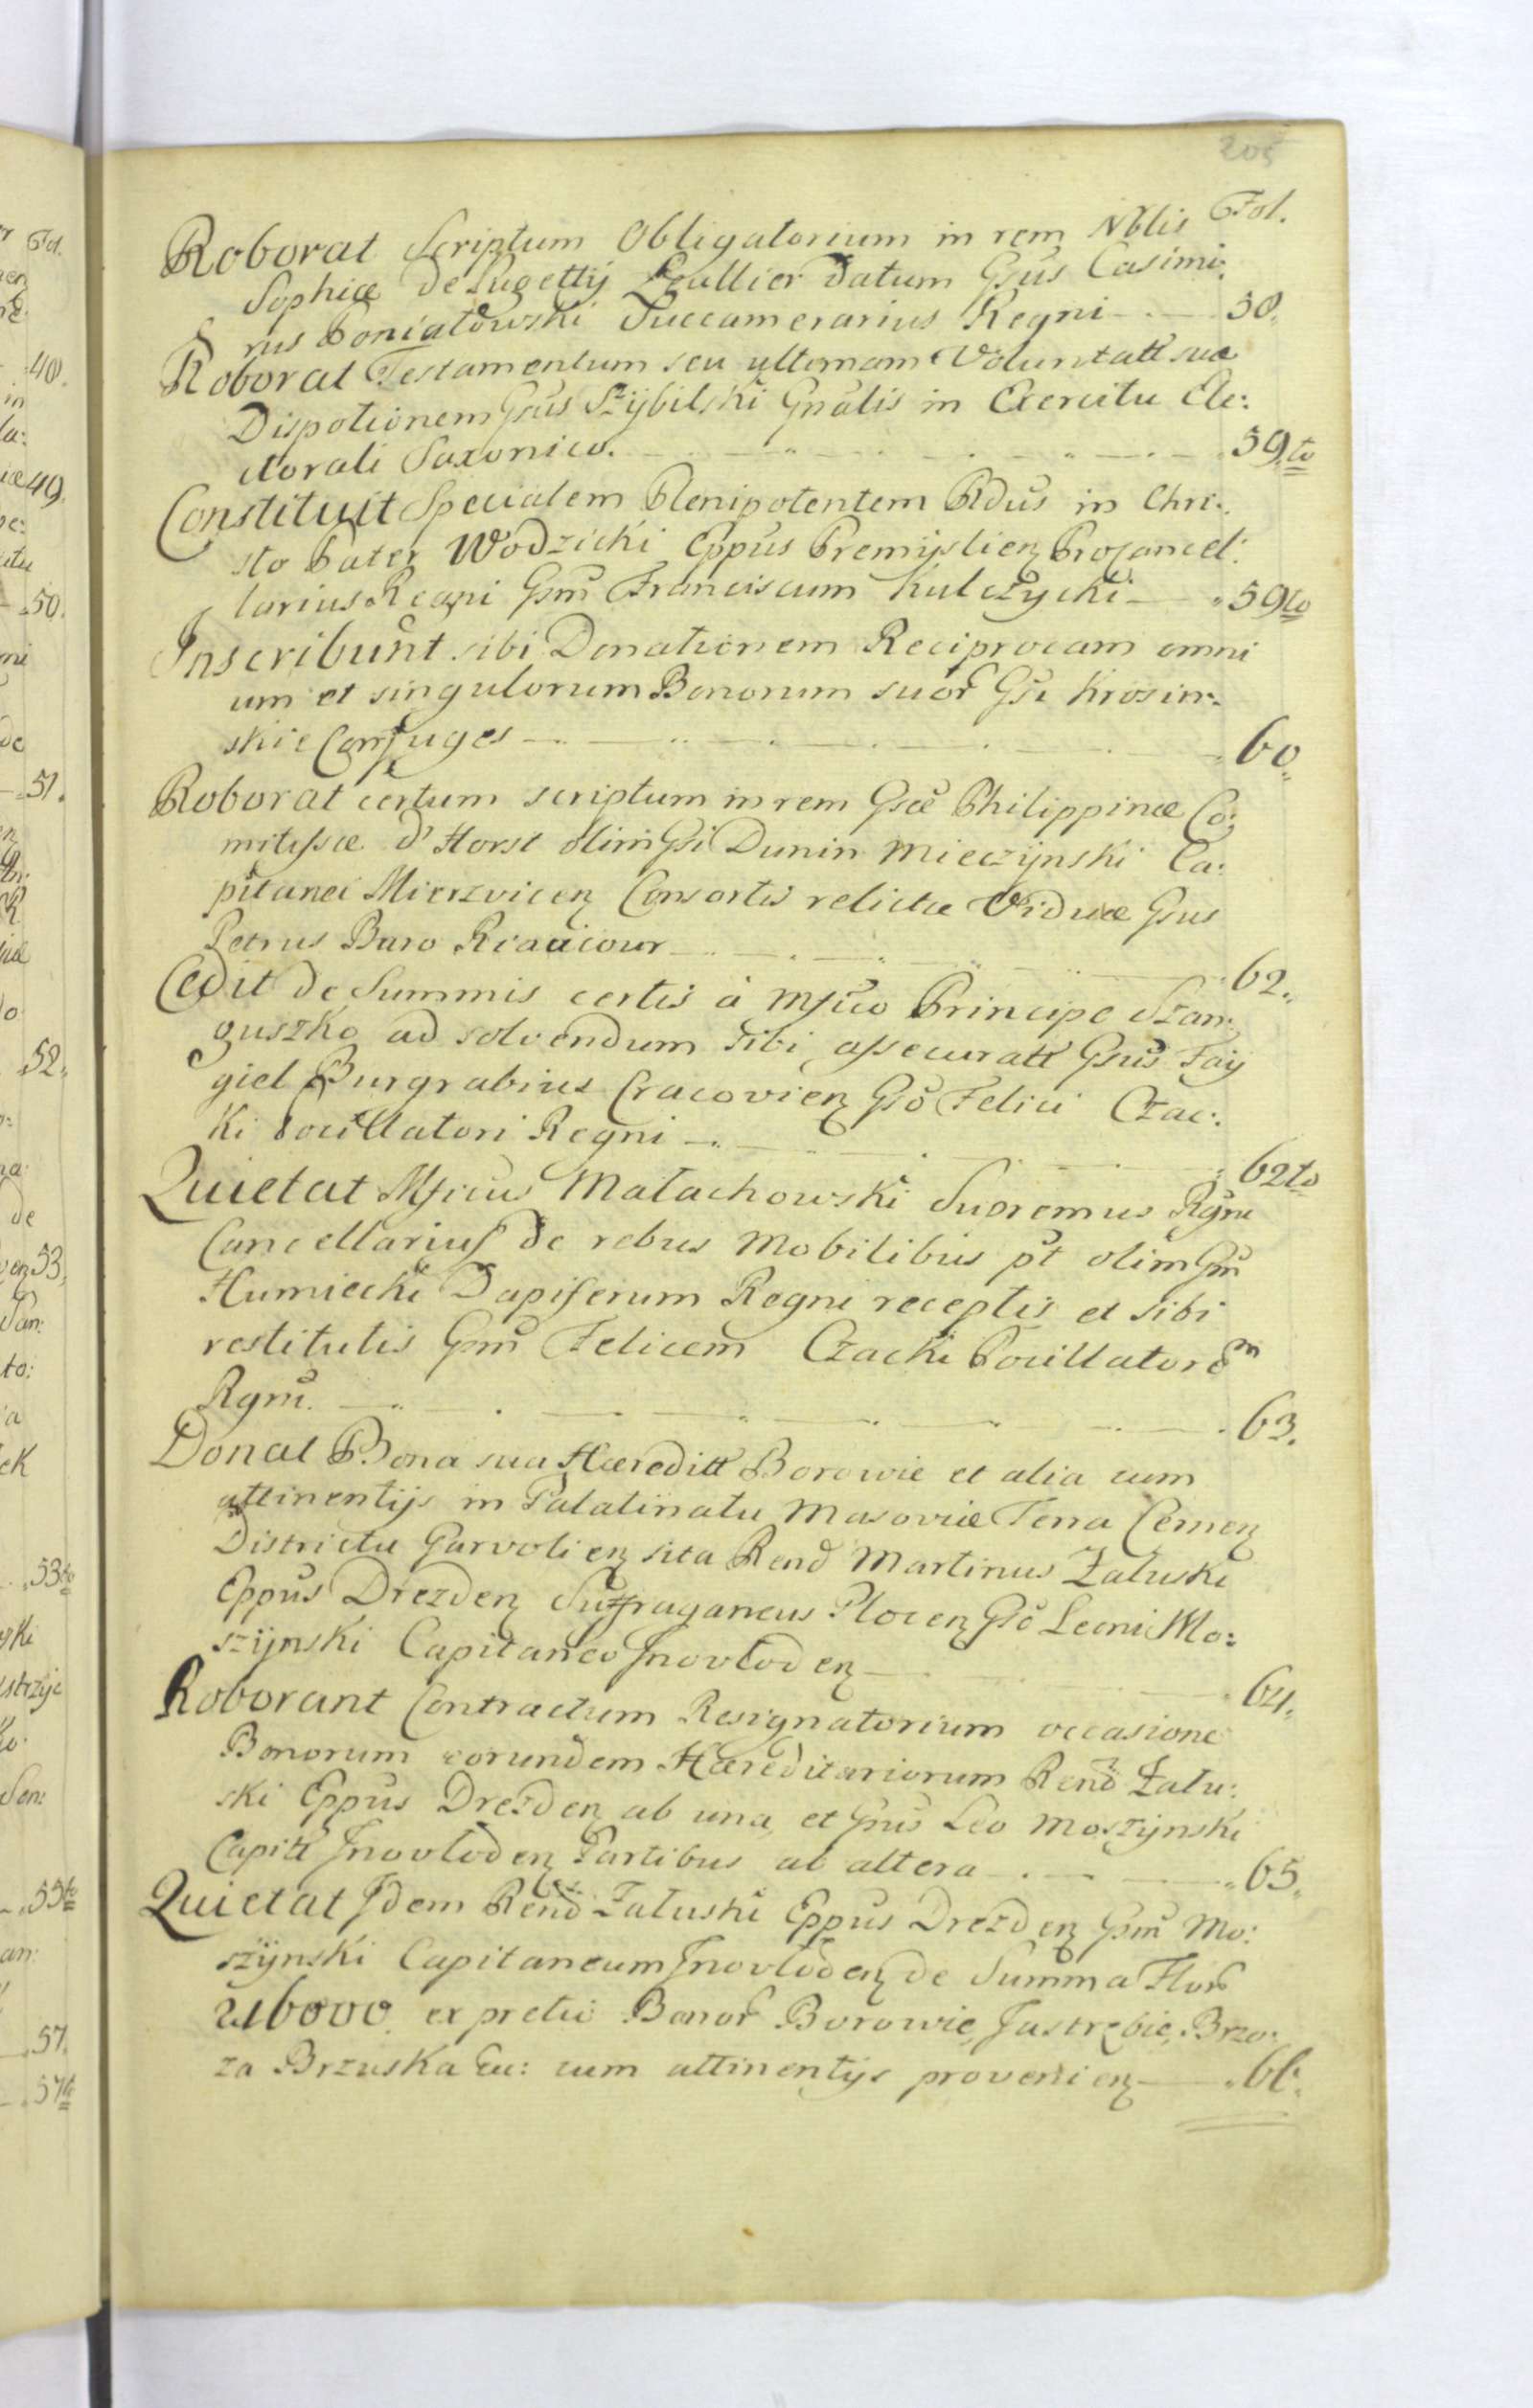 205
Fol.
Roborat Scriptum Obligatorium in rem Nblis
Sophiæ de Lugettij Lhullier datum Gsus Casimi:
rus Poniatowski Succamerarius Regni 58.
Roborat Testamentum seu ultimam Voluntatt suæ
Dispotionem Gsus Szybilski Gnalis in Exercitu Ele:
ctorali Saxonico. 59.to
Constituit Specialem Plenipotentem Rdus in Chri:
sto Pater Wodzicki Eppus Premislien Procancel:
larius Regni Gsm Franciscum Kulczycki 59to
Inscribunt sibi Donationem Reciprocam omni
um et singulorum Bonorum suor Gsi Krosin:
skie Conjuges 60.
Roborat certum scriptum in rem Gsæ Philippinæ Co:
mitissæ d'Horst olim Gsi Dunin Mieczijnski Ca:
pitanei Mierzvicen Consortis relictæ Viduæ Gsus
Petrus Baro Riaucour 62.
Cedit de Summis certis à Mfico Principe Szan:
guszko ad solvendum sibi assecuratt Gsus Fay
giel Burgrabius Cracovien Gso Felici Czac:
ki Pocillatori Regni 62to
Quietat Mficus Małachowski Supremus Rgni
Cancellarius de rebus Mobilibus pt olim Gsm
Humiecki Dapiferum Regni receptis et sibi
restitutis Gsm Felicem Czacki Pocillatorem
Rgni. 63.
Donat Bona sua Hæreditt Borowie et alia cum
attinentijs in Palatinatu Masoviæ Terra Cernen
Districtu Garvolien sita Rend Martinus Załuski
Eppus Drezden Suffraganeus Plocen Gso Leoni Mo:
szijnski Capitaneo Jnovłoden 64.
Roborant Contractum Resignatorium occasione
Bonorum eorundem Hæreditariorum Rend Zału:
ski Eppus Drezden ab una, et Gsus Leo Moszijnski
Capitt Jnovłoden Partibus ab altera 65.
Quietat Jdem Rend Załuski Eppus Drezden Gsm Mo:
szijnski Capitaneum Jnovłoden de Summa Flor
216000 ex pretio Bonor Borowie, Jastrzbie, Brzo:
za Brzuska &c: cum attinentijs provenien 66.